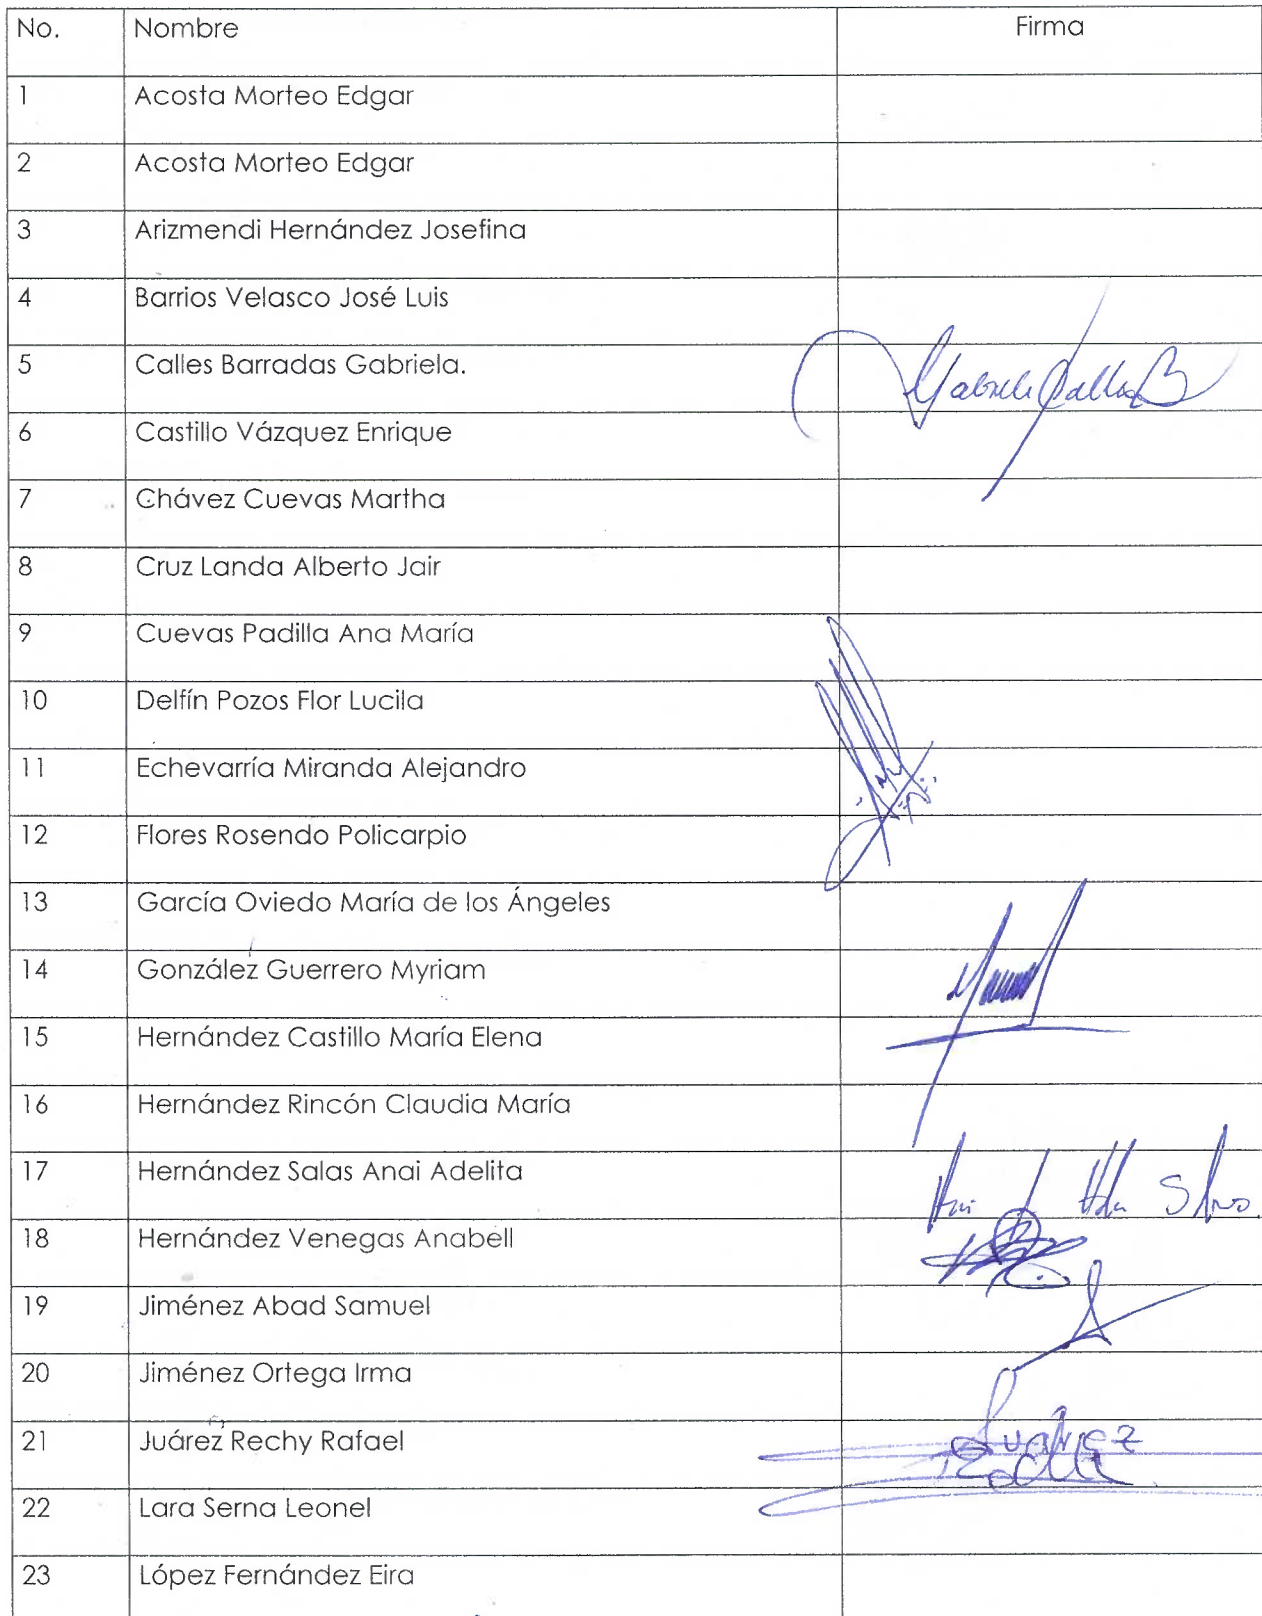 No. Nombre Firma
1 Acosta Morteo Edgar
2 Acosta Morteo Edgar
3 Arizmendi Hernández Josefina
4 Barrios Velasco José Luis
5 Calles Barradas Gabriela.
6 Castillo Vázquez Enrique
7 Chávez Cuevas Martha
8 Cruz Landa Alberto Jair
9 Cuevas Padilla Ana María
10 Delfín Pozos Flor Lucila
11 Echevarría Miranda Alejandro
12 Flores Rosendo Policarpio
13 García Oviedo María de los Ángeles
14 González Guerrero Myriam
15 Hernández Castillo María Elena
16 Hernández Rincón Claudia María
17 Hernández Salas Anai Adelita
18 Hernández Venegas Anabell
19 Jiménez Abad Samuel
20 Jiménez Ortega Irma
21 Juárez Rechy Rafael
22 Lara Serna Leonel
23 López Fernández Eira